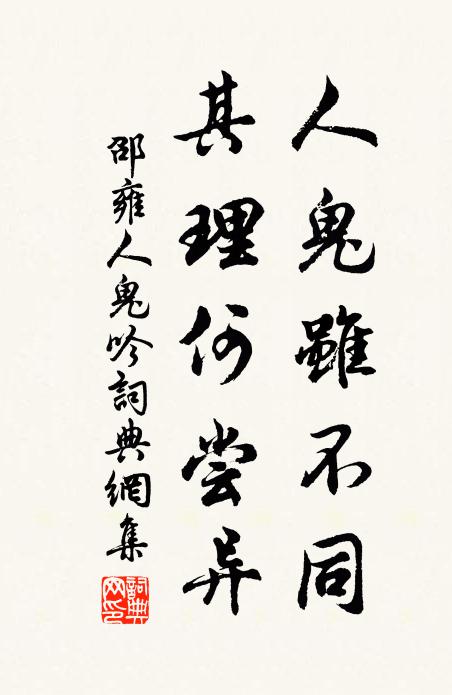 人鬼雖不同
其理何尝异
邵雍人鬼吟詞典網集
詞典网印